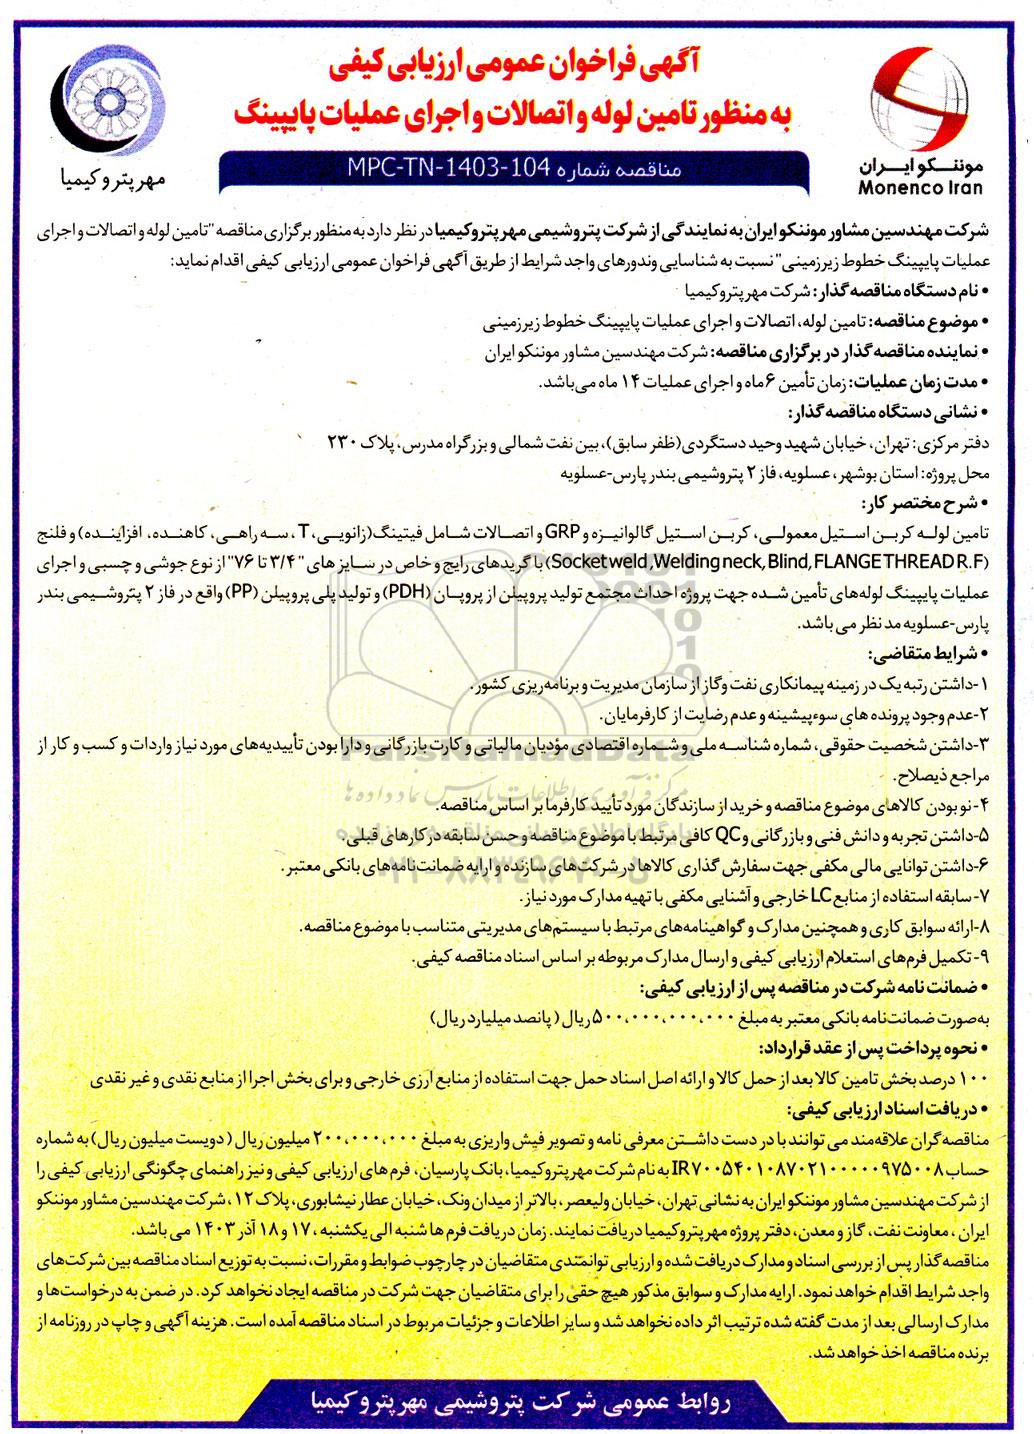 آگهی فراخوان عمومی ارزیابی کیفی
به منظور تامین لوله و اتصالات و اجرای عملیات پایپینگ
مناقصه شماره MPC-TN-1403-104
موننکو ایران
Monenco Iran
مهر پترو کیمیا
شرکت مهندسین مشاور موننکو ایران به نمایندگی از شرکت پتروشیمی مهر پتروکیمیا در نظر دارد به منظور برگزاری مناقصه "تامین لوله و اتصالات و اجرای
عملیات پایپینگ خطوط زیرزمینی" نسبت به شناسایی وندورهای واجد شرایط از طریق آگهی فراخوان عمومی ارزیابی کیفی اقدام نماید:
• نام دستگاه مناقصه گذار: شرکت مهر پتروکیمیا
• موضوع مناقصه: تامین لوله، اتصالات و اجرای عملیات پایپینگ خطوط زیرزمینی
• نماینده مناقصه گذار در برگزاری مناقصه: شرکت مهندسین مشاور موننکو ایران
• مدت زمان عملیات: زمان تأمین ۶ ماه و اجرای عملیات ۱۴ ماه می‌باشد.
• نشانی دستگاه مناقصه گذار:
دفتر مرکزی: تهران، خیابان شهید وحید دستگردی (ظفر سابق)، بین نفت شمالی و بزرگراه مدرس، پلاک ۲۳۰
محل پروژه: استان بوشهر، عسلویه، فاز ۲ پتروشیمی بندر پارس-عسلویه
• شرح مختصر کار:
تامین لوله کربن استیل معمولی، کربن استیل گالوانیزه و GRP و اتصالات شامل فیتینگ (زانویی، T، سه راهی، کاهنده، افزاینده) و فلنج
(Socket weld ,Welding neck, Blind, FLANGE THREAD R.F) با گریدهای رایج و خاص در سایزهای "۳/۴ تا ۷۶" از نوع جوشی و چسبی و اجرای
عملیات پایپینگ لوله‌های تأمین شده جهت پروژه احداث مجتمع تولید پروپیلن از پروپان (PDH) و تولید پلی پروپیلن (PP) واقع در فاز ۲ پتروشیمی بندر
پارس-عسلویه مد نظر می باشد.
• شرایط متقاضی:
۱-داشتن رتبه یک در زمینه پیمانکاری نفت وگاز از سازمان مدیریت و برنامه‌ریزی کشور.
۲-عدم وجود پرونده های سوءپیشینه و عدم رضایت از کارفرمایان.
۳-داشتن شخصیت حقوقی، شماره شناسه ملی و شماره اقتصادی مؤدیان مالیاتی و کارت بازرگانی و دارا بودن تأییدیه‌های مورد نیاز واردات و کسب و کار از
مراجع ذیصلاح.
۴-نو بودن کالاهای موضوع مناقصه و خرید از سازندگان مورد تأیید کارفرما بر اساس مناقصه.
۵-داشتن تجربه و دانش فنی و بازرگانی و QC کافی مرتبط با موضوع مناقصه و حسن سابقه در کارهای قبلی.
۶-داشتن توانایی مالی مکفی جهت سفارش گذاری کالاها در شرکت‌های سازنده و ارایه ضمانت‌نامه‌های بانکی معتبر.
۷-سابقه استفاده از منابع LC خارجی و آشنایی مکفی با تهیه مدارک مورد نیاز.
۸-ارائه سوابق کاری و همچنین مدارک و گواهینامه‌های مرتبط با سیستم‌های مدیریتی متناسب با موضوع مناقصه.
۹-تکمیل فرم‌های استعلام ارزیابی کیفی و ارسال مدارک مربوطه بر اساس اسناد مناقصه کیفی.
• ضمانت نامه شرکت در مناقصه پس از ارزیابی کیفی:
به‌صورت ضمانت‌نامه بانکی معتبر به مبلغ ۵۰۰،۰۰۰،۰۰۰،۰۰۰ ریال (پانصد میلیارد ریال)
• نحوه پرداخت پس از عقد قرارداد:
۱۰۰ درصد بخش تامین کالا بعد از حمل کالا و ارائه اصل اسناد حمل جهت استفاده از منابع ارزی خارجی و برای بخش اجرا از منابع نقدی و غیر نقدی
• دریافت اسناد ارزیابی کیفی:
مناقصه‌گران علاقه‌مند می توانند با در دست داشتن معرفی نامه و تصویر فیش واریزی به مبلغ ۲۰۰،۰۰۰،۰۰۰ میلیون ریال (دویست میلیون ریال) به شماره
حساب IR۷۰۰۵۴۰۱۰۸۷۰۲۱۰۰۰۰۰۹۷۵۰۰۸ به نام شرکت مهر پتروکیمیا، بانک پارسیان، فرم های ارزیابی کیفی و نیز راهنمای چگونگی ارزیابی کیفی را
از شرکت مهندسین مشاور موننکو ایران به نشانی تهران، خیابان ولیعصر، بالاتر از میدان ونک، خیابان عطار نیشابوری، پلاک ۱۲، شرکت مهندسین مشاور موننکو
ایران، معاونت نفت، گاز و معدن، دفتر پروژه مهر پتروکیمیا دریافت نمایند. زمان دریافت فرم ها شنبه الی یکشنبه، ۱۷ و ۱۸ آذر ۱۴۰۳ می باشد.
مناقصه گذار پس از بررسی اسناد و مدارک دریافت شده و ارزیابی توانمندی متقاضیان در چارچوب ضوابط و مقررات، نسبت به توزیع اسناد مناقصه بین شرکت‌های
واجد شرایط اقدام خواهد نمود. ارایه مدارک و سوابق مذکور هیچ حقی را برای متقاضیان جهت شرکت در مناقصه ایجاد نخواهد کرد. در ضمن به درخواست‌ها و
مدارک ارسالی بعد از مدت گفته شده ترتیب اثر داده نخواهد شد و سایر اطلاعات و جزئیات مربوط در اسناد مناقصه آمده است. هزینه آگهی و چاپ در روزنامه از
برنده مناقصه اخذ خواهد شد.
روابط عمومی شرکت پتروشیمی مهر پترو کیمیا
ParsNamadData